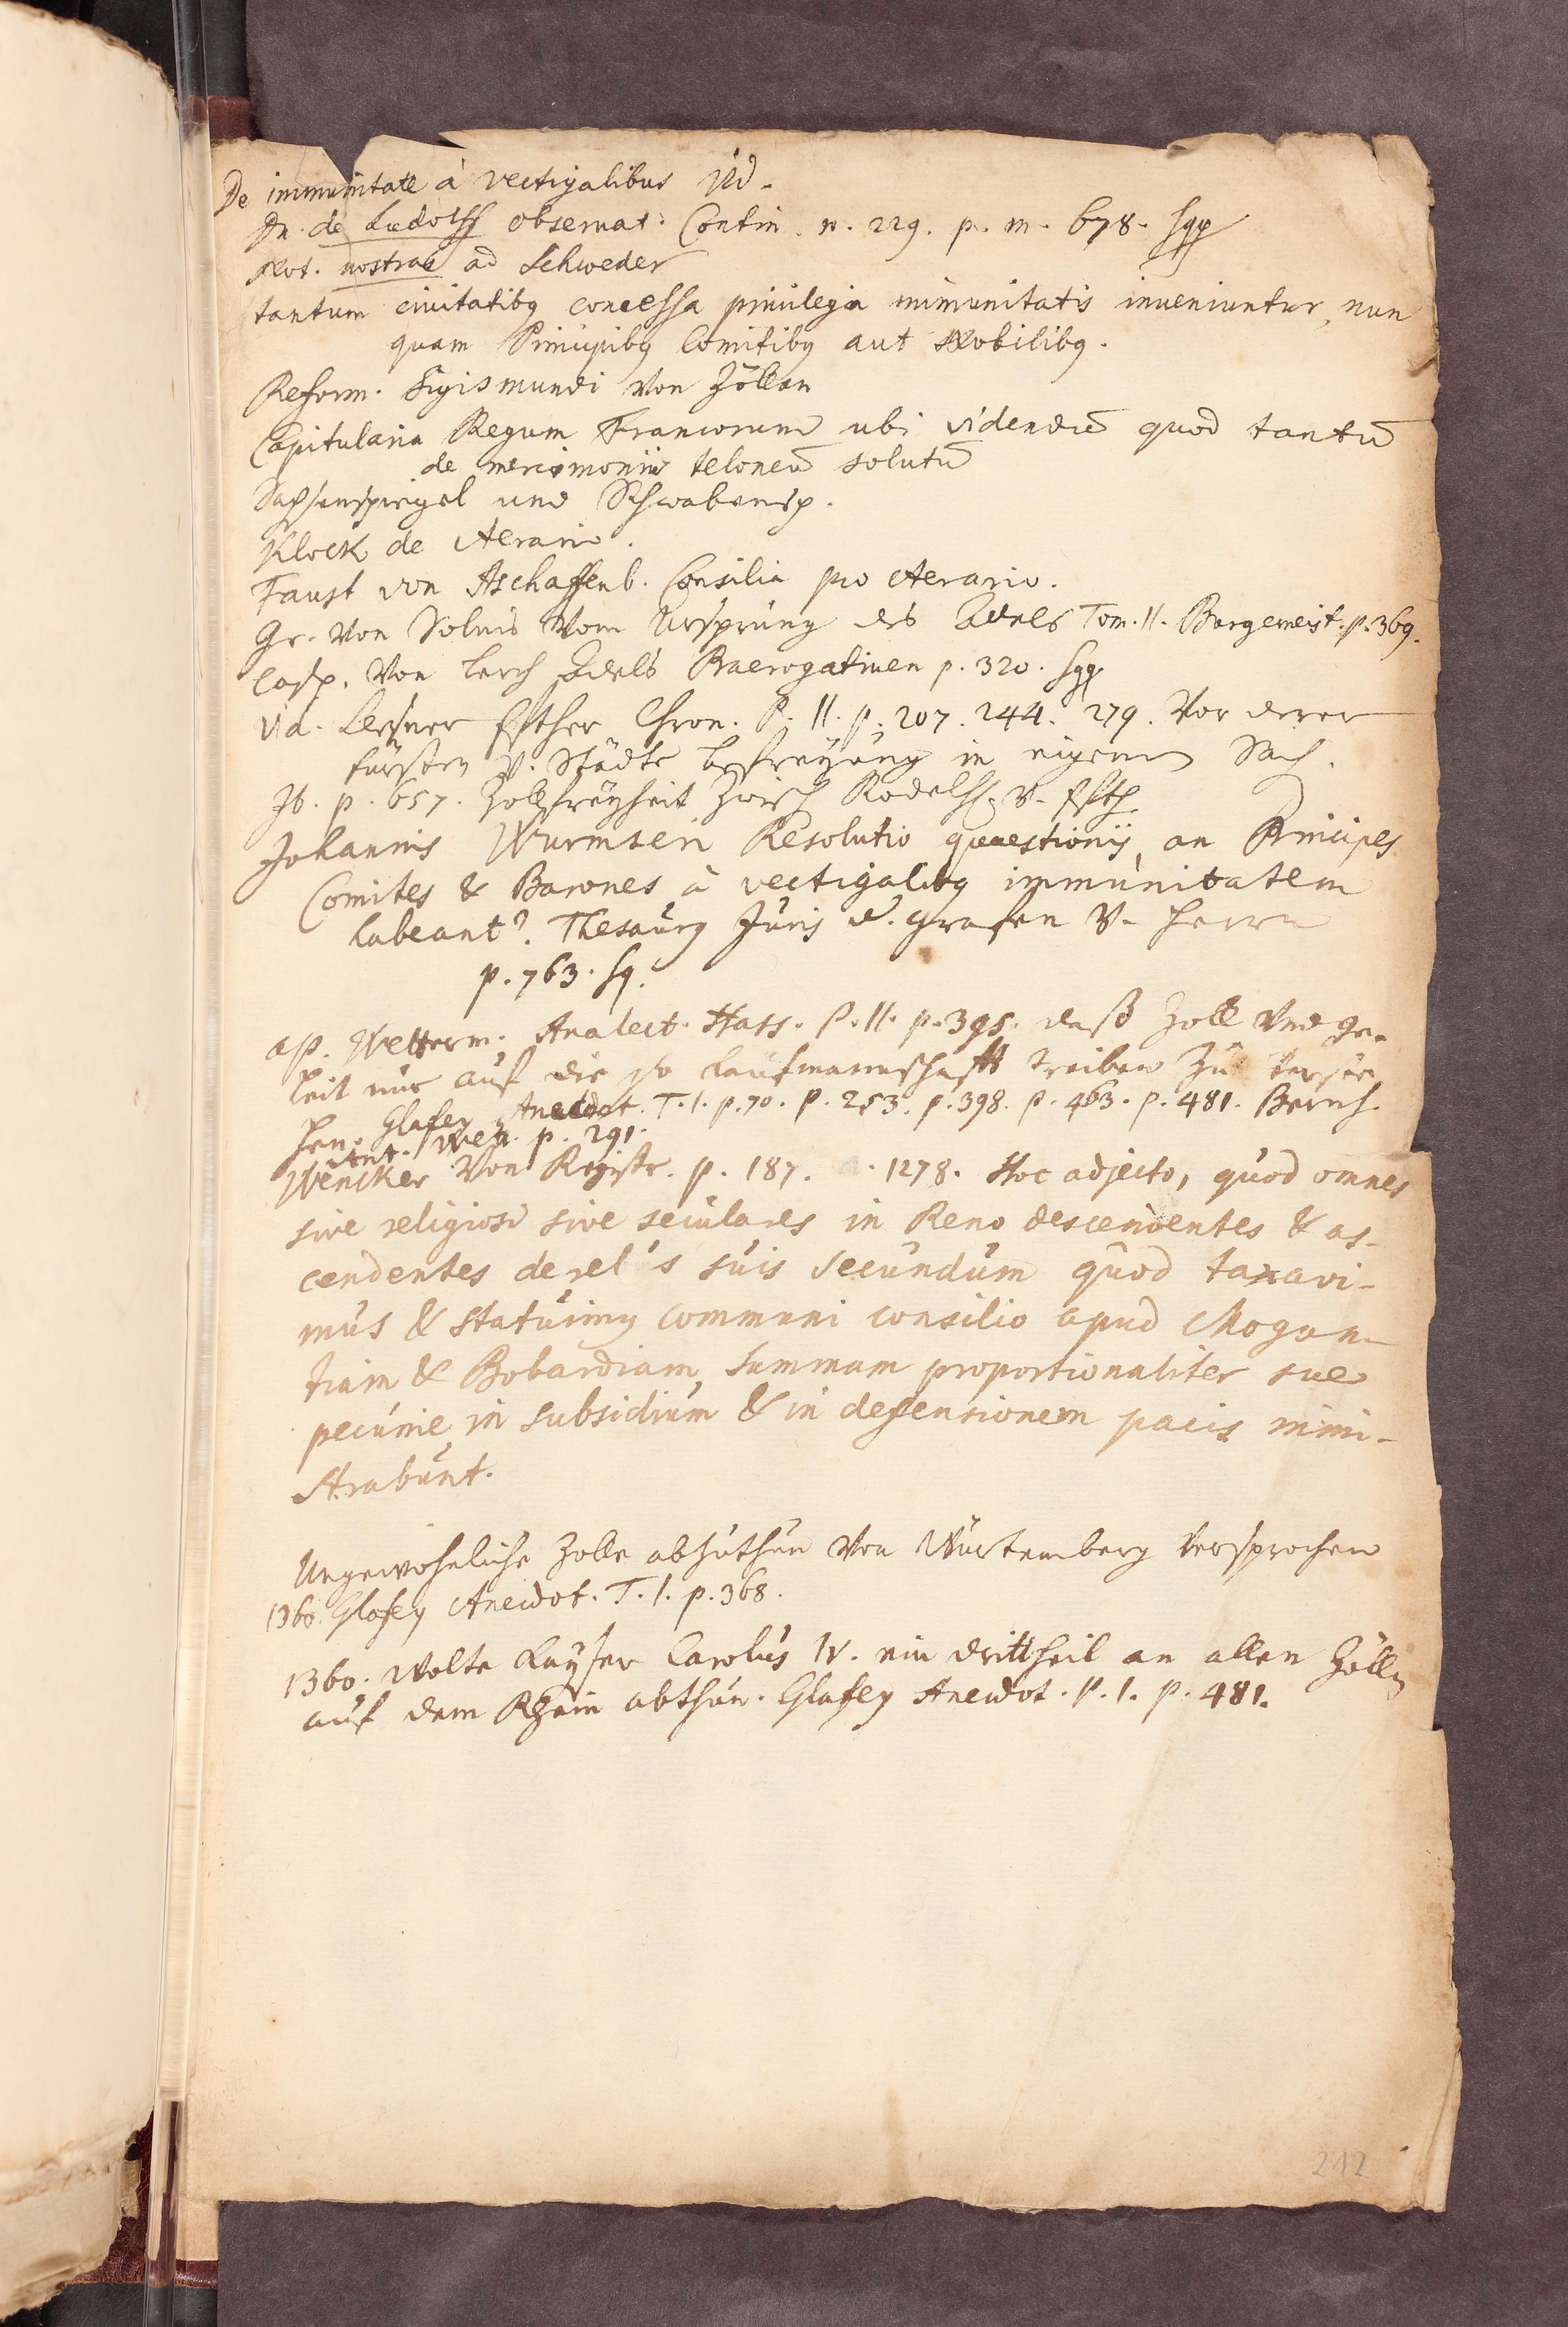 De immunitate à vectigalibus Vid.
Dn. de Ludolff observat. Contin. n. 229. p. m. 678. sqq
Not. nostrae ad Schweder
tantum civitatibq concessa privilegia immunitatis inveniuntur, nun
quam Principibq Comitibq aut Nobilibq.
Reform. Sigismundi von Zöllen
Capitularia Regum Francorum ubi videndū quod tantū
de mercimoniis teloneū solutū
Sachsenspiegel und Schwabensp.
Klock de Aerario.
Faust von Aschaffenb. Consilia pro Aerario.
Gr. von Solms vom Ursprung des Adels Tom. II. Burgemeist. p. 369.
Casp. von Lerch Adels Praerogativen p. 320. sqq.
Vid. Lersner Ffther Chron. P. II. p. 207. 244. 279. Von derer
Fürsten v. Städte befreyung in eigenen Sach.
Ib. p. 657. Zollfreyheit zwisch Rodelh. v. Ffth.
Johannis Wurmseri Resolutio quaestionis, an Principes
Comites & Barones à vectigalibq immunitatem
habeant? Thesaurq Juris d. Grafen v. Herrn
p. 763. sq.
ap. Wetterm. Analect. Hass. P. II. p. 395. daß Zoll und ge-
leit nur auf die so Kaufmannschafft treiben zu verste
hen. Glafey Anecdot. T. I. p. 70. p. 253. p. 398. p. 463. p. 481. Bernh.
Ant. Wett. p. 291.
Wencker von Registr. p. 187. a. 1278. Hoc adjecto, quod omnes
sive religiosi sive seculares in Reno descendentes & as-
cendentes de rel's suis secundum quod taxavi-
mus & statuimq communi consilio apud Mogun-
tiam & Bobardiam, summam proportionaliter sue
pecunie in subsidium & in defensionem pacis mini-
strabunt.
Ungewohnliche Zolle abzuthun von Würtemberg versprochen
1360. Glafey Anecdot. T. I. p. 368.
1360. wolte Kayser Carolus IV. ein drittheil an allen Zölln
auf dem Rhein abthun. Glafey Anecdot. P. I. p. 481.
212